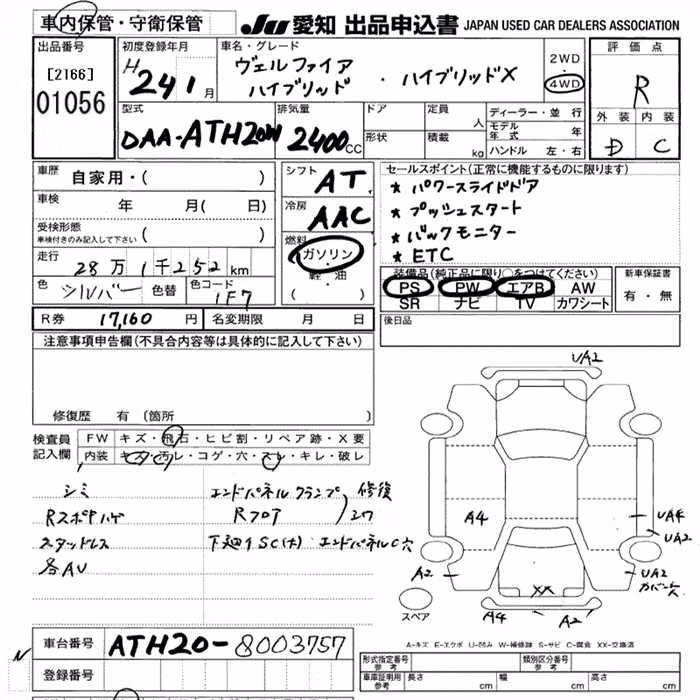 車内保管・守衛保管 JU 愛知 出品申込書 JAPAN USED CAR DEALERS ASSOCIATION
出品番号 [2166] 01056
初度登録年月 H 24 1 月
車名・グレード ヴェルファイア ハイブリッド ・ ハイブリッドX
2WD ・ 4WD
評価点 R
外装 内装
D C
型式 DAA-ATH20W
排気量 2400 CC
ドア 形状
定員 人
積載 kg
ディーラー・並行
モデル年式 年
ハンドル 左・右
車歴 自家用・( )
車検 年 月( 日)
受検形態 車検付きのみ記入して下さい ( )
走行 28万1千252 km
色 シルバー 色替 色コード 1F7
シフト AT
冷房 AAC
燃料 ガソリン ・ 軽・油 ( )
セールスポイント(正常に機能するものに限ります)
★ パワースライドドア
★ プッシュスタート
★ バックモニター
★ ETC
装備品(純正品に限り○をつけてください)
PS PW エアB AW
SR ナビ TV カワシート
新車保証書 有・無
R券 17,160 円 名変期限 月 日
後日品
注意事項申告欄(不具合内容等は具体的に記入して下さい)
修復歴 有(箇所
検査員記入欄
FW キズ・飛石・ヒビ割・リペア跡・X要
内装 キズ・汚レ・コゲ・穴・スレ・キレ・破レ
シミ
Rスポイラハゲ
スタッドレス
各AU
エンドパネルクランプ 修復
Rフロア
下廻りSC(大) エンドパネルC穴
UA2
A4
UA4
UA2
A2
UA2
カバー穴
XX
A4 A2
スペア
A-キズ E-エクボ U-凹み W-補修跡 S-サビ C-腐食 XX-交換済
車台番号 ATH20-8003757
登録番号
形式指定番号 参考
類別区分番号 参考
車庫証明用 参考 長さ cm 幅 cm 高さ cm